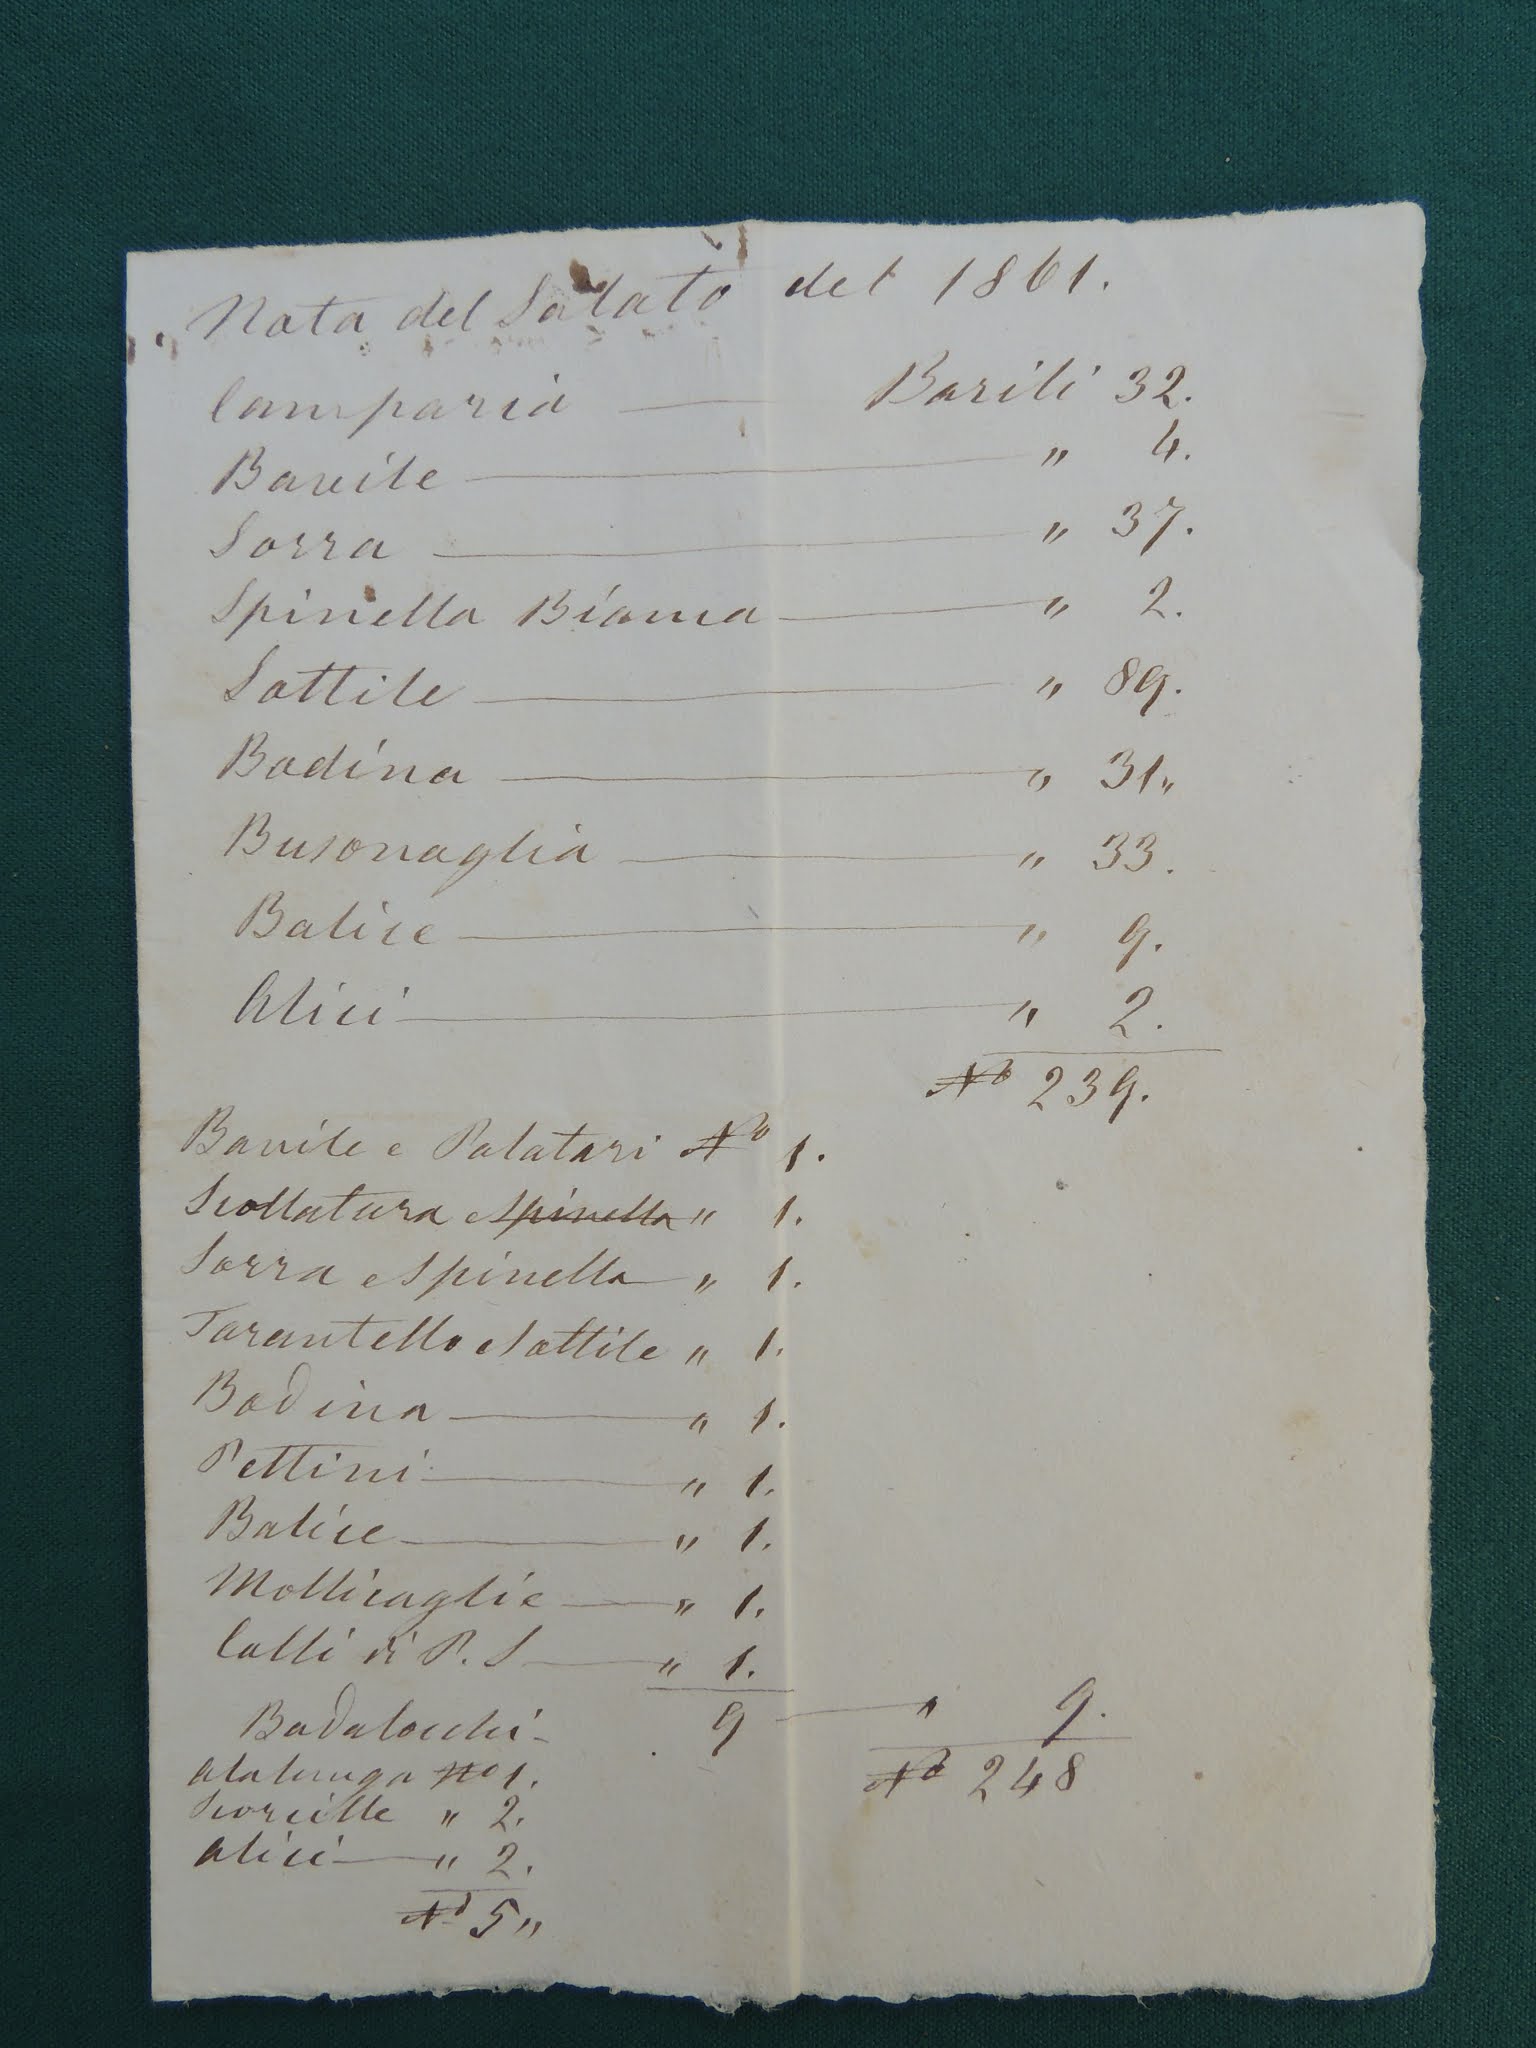 Nota del Salato del 1861.
Camparia — Barili 32.
Barile — " 4.
Sorra — " 37.
Spinella Bianca — " 2.
Sottile — " 89.
Bodina — " 31"
Busonaglia — " 33.
Batice — " 9.
Alici — " 2.
No 239.
Barile e Palatari No 1.
Scollatura e Spinella " 1.
Sorra e Spinella — " 1.
Tarantello e Sottile " 1.
Bodina — " 1.
Pettini — " 1.
Batice — " 1.
Mollicaglie — " 1.
Colli di P. S — " 1.
9 — " 9.
No 248
Badalocchi -
Alalunga No 1.
Scorcille " 2.
Alici — " 2.
No 5"